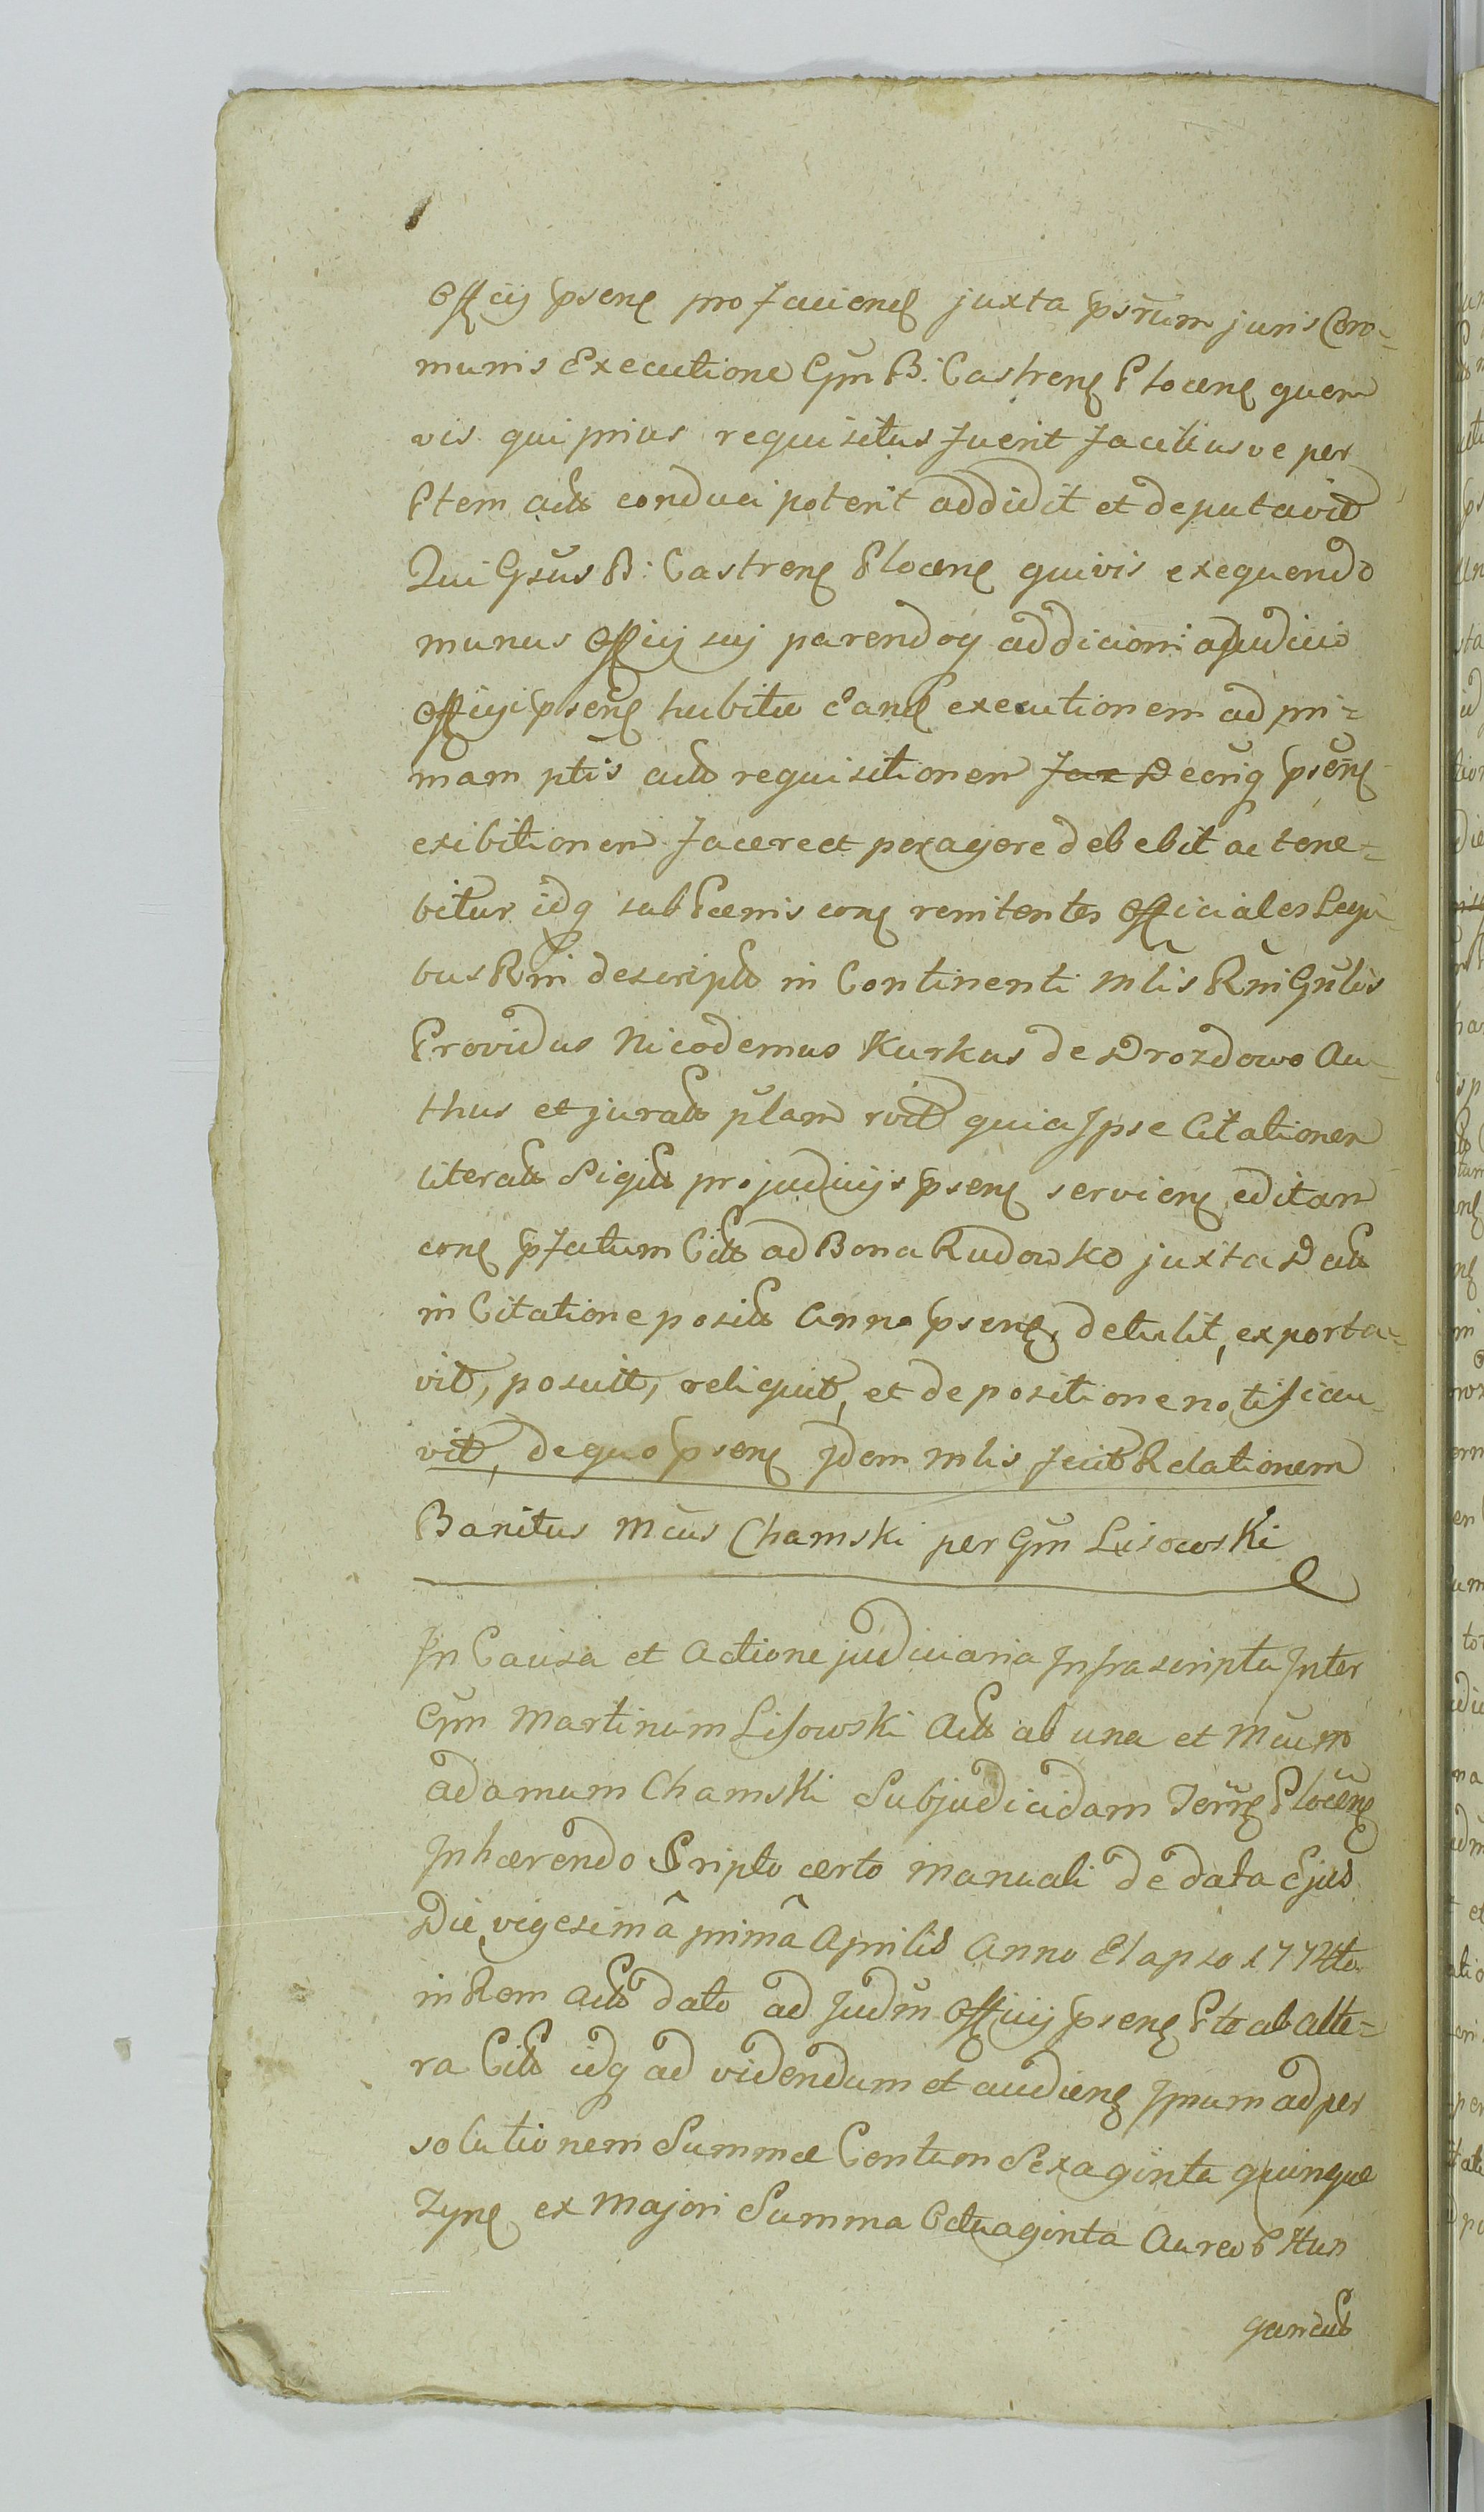 Officij psenę pro facienđ juxta psrūm juris Com=
munis Executione Gūm B: Castrenę Plocenę quem
vis qui prius requisitus fuerit faciliusve per
Ptem actt conduci poterit addidit et deputavit
Qui Gsūs B: Castrenę Plocenę quivis exequendo
munus Officij sui parendoq addicioni a Judicio
Officij psenę habitæ eand executionem ad pri=
mam ptis actt requisitionem Decriq psenę
exibitionem facere et peragere debebit ac tene=
bitur idq sub Pœnis conę renitentes Officiales Legi
bus Rni descriptt in Continenti Mlis Rni Gnlis
Providus Nicodemus Kurkus de Drozdowo Au
thus et juratt plam rvit quia Ipse Citationem
literatt Sigilt pro judicijs psenę servienę editam
conę pfatum Citt ad Bona Rudowko juxta Datt
in Citatione positt Anno psenę, detulit, exporta=
vit, posuit, reliquit, et depositione notificau
vit, de quo psenę Idem Mlis fecit Relationem
Banitus Mcus Chamski per Gūm Lisowski
In Causa et Actione judiciaria Infrascripta Inter
Gūm Martinum Lisowski Actt ab una et Mcum
Adamum Chamski Subjudicidam Terrę Plocenę
Inhærendo Scripto certo manuali de data Ejus
Die vigesimâ primâ Aprilis Anno Elapso 1774to
in Rem Actt dato ad Judm Officij psenę Pte ab alte=
ra Citt idq ad videndum et audienę Ipsum ad per
solutionem Summæ Centum Sexaginta quinque
Tynę ex Majori Summa Octuaginta Aureor Hun
garicalt